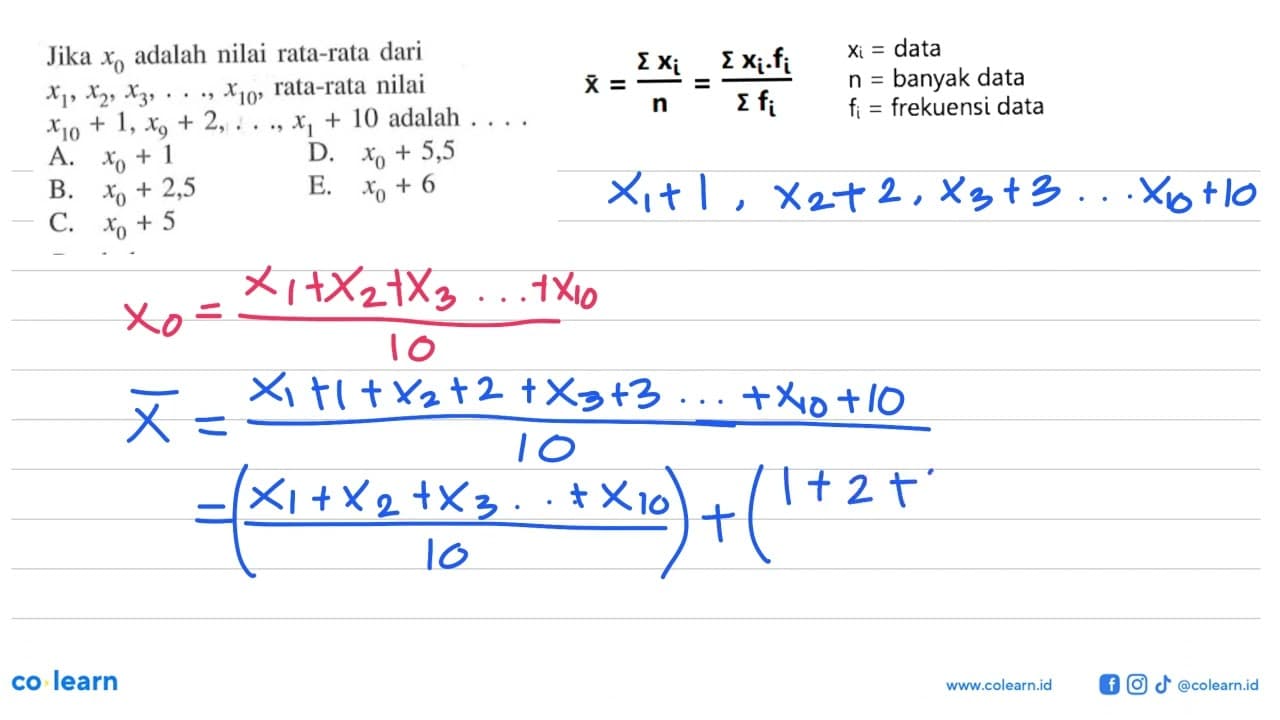 Jika x₀ adalah nilai rata-rata dari
x₁, x₂, x₃, . . ., x₁₀, rata-rata nilai
x₁₀ + 1, x₉ + 2, . . ., x₁ + 10 adalah . . . .
A. x₀ + 1 D. x₀ + 5,5
B. x₀ + 2,5 E. x₀ + 6
C. x₀ + 5
x̄ = Σ xᵢ / n = Σ xᵢ.fᵢ / Σ fᵢ
xᵢ = data
n = banyak data
fᵢ = frekuensi data
x₁+1, x₂+2, x₃+3 ... x₁₀+10
x₀ = x₁+x₂+x₃ ...+x₁₀ / 10
x̄ = x₁+1+x₂+2+x₃+3 ... +x₁₀+10 / 10
= (x₁+x₂+x₃ . . +x₁₀ / 10) + (1+2+
co learn
www.colearn.id @colearn.id